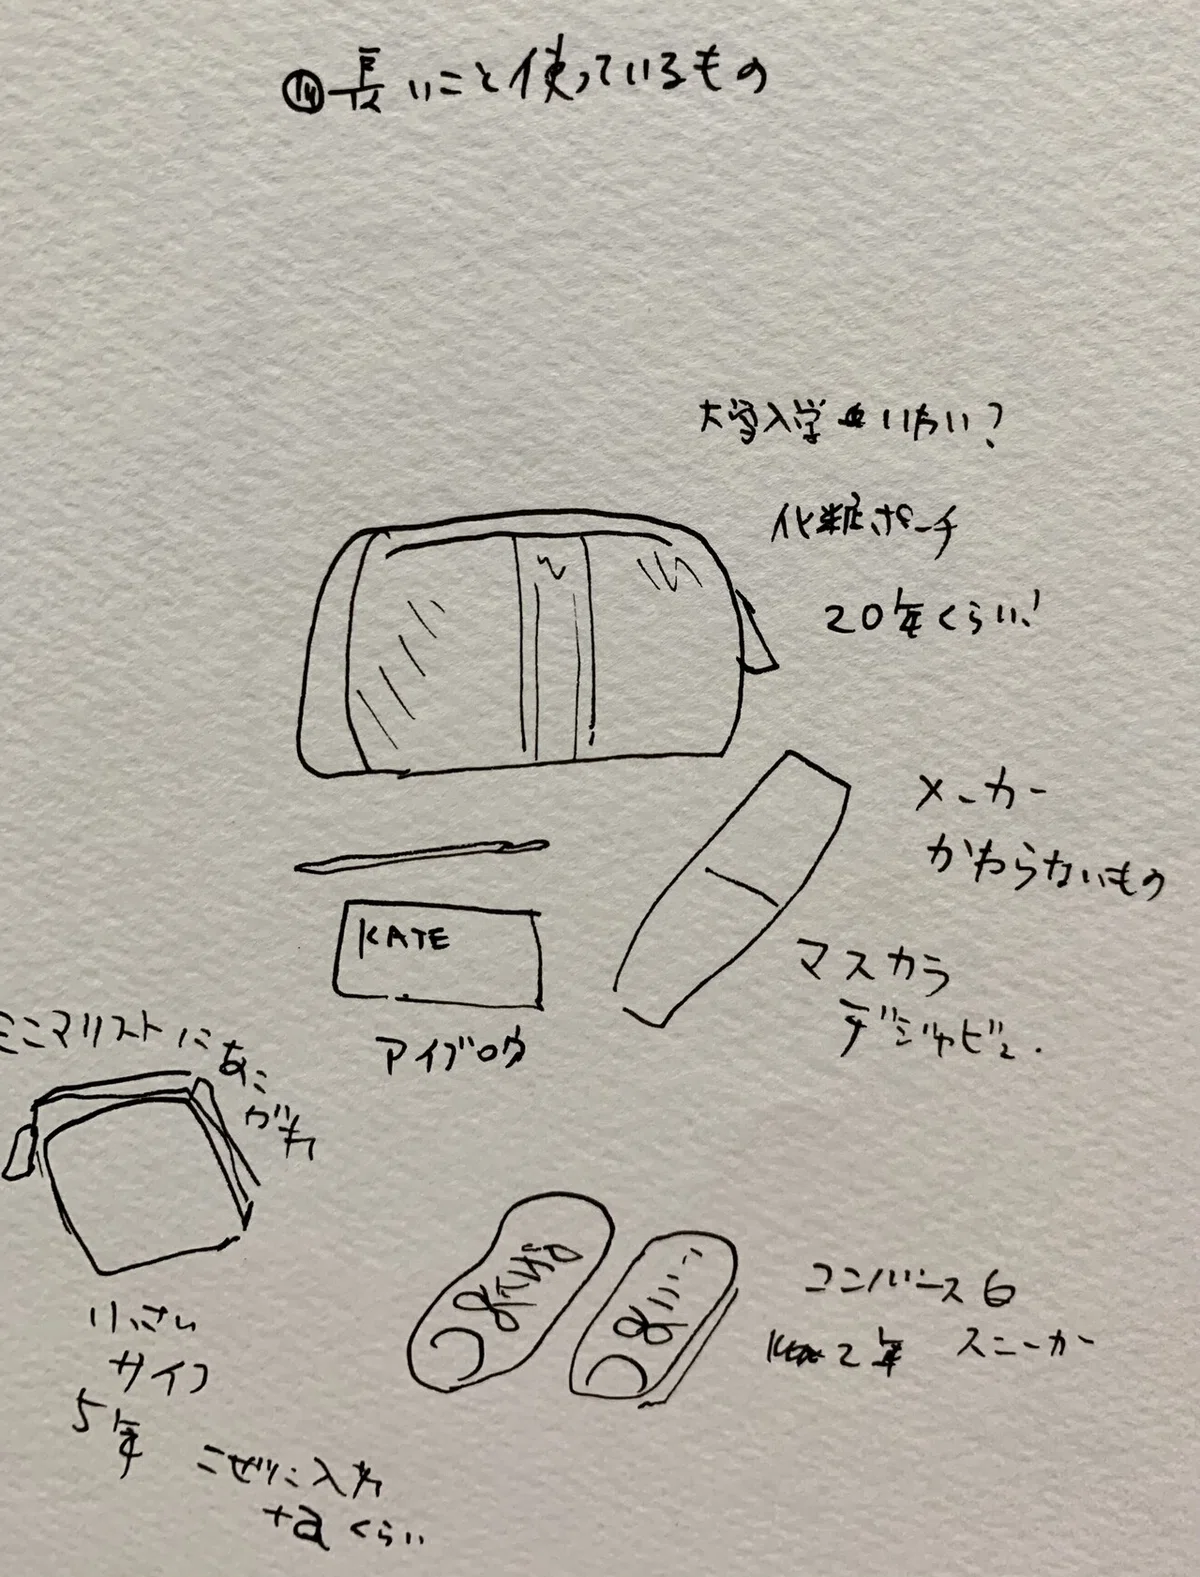 ⑭長いこと使っているもの
大学入学 いわい?
化粧ポーチ
20年くらい!
メーカー
かわらないもの
KATE
アイブロウ
マスカラ
デジャヴュ.
ミニマリストに
あこ
がれ
小さい
サイフ
5年
こぜに入れ
+a くらい
コンバースの
2年 スニーカー